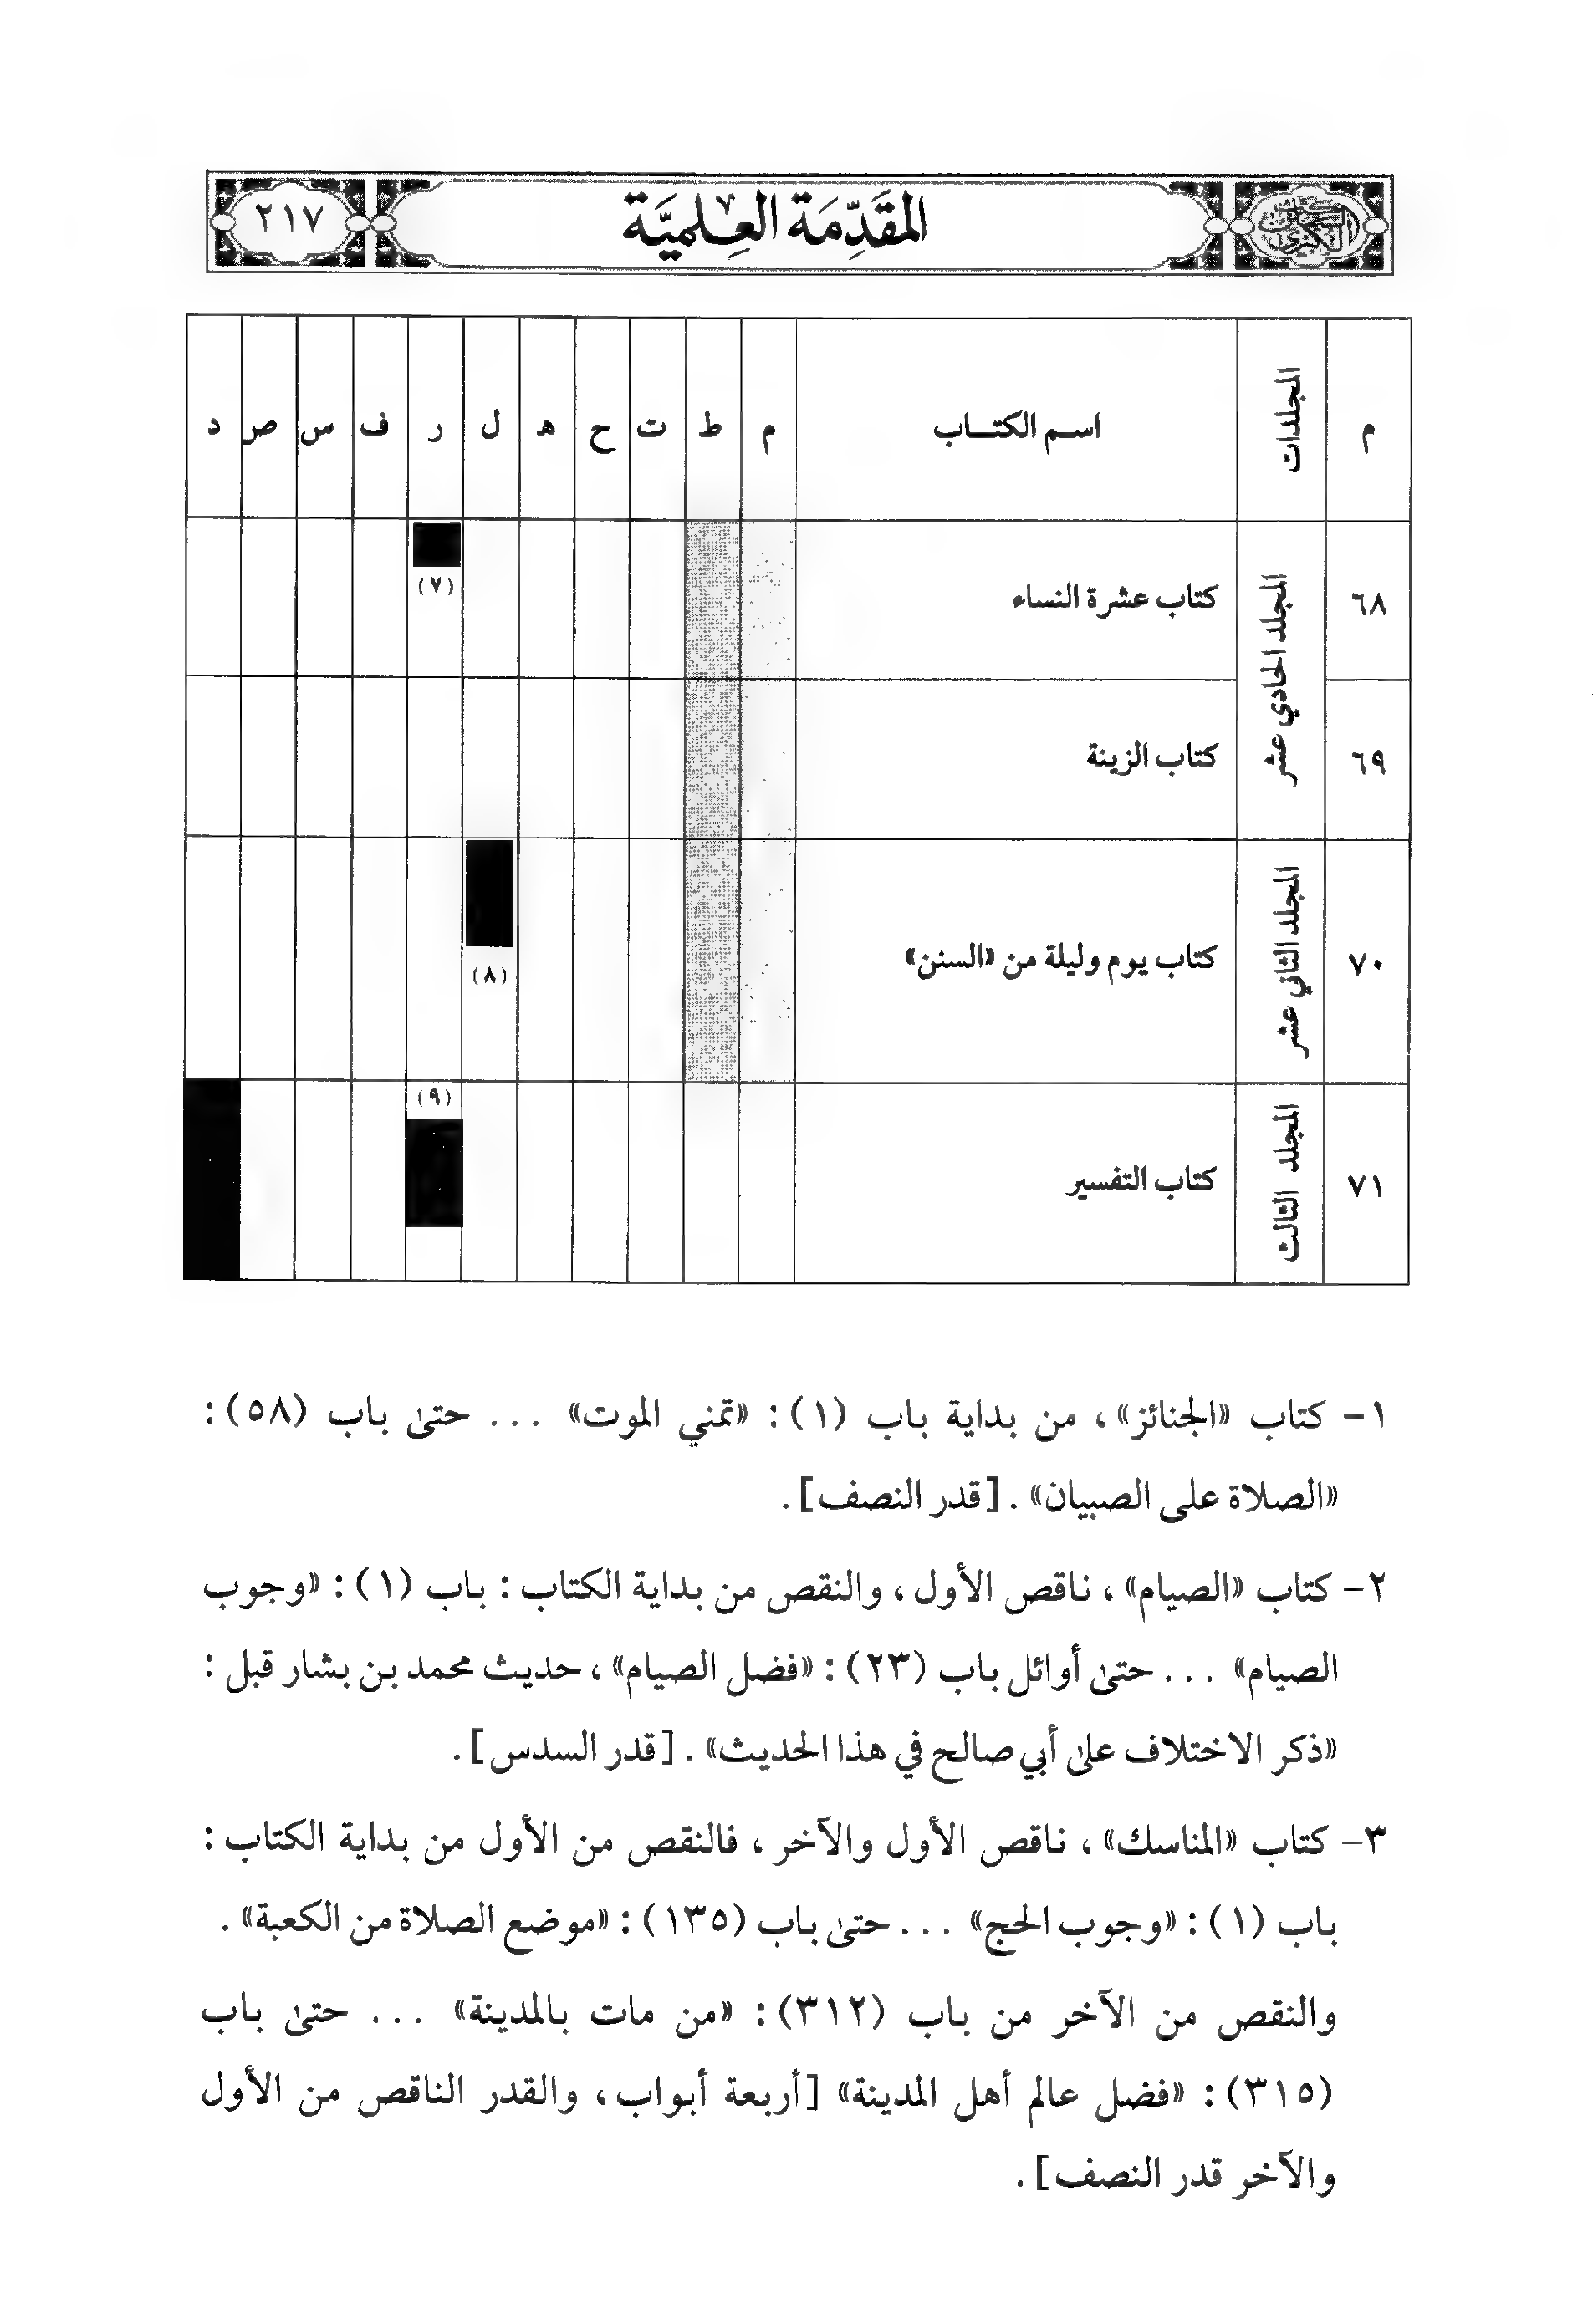 المقَدِّمَة العِلميَّة
٢١٧
م المجلدات اسم الكتاب م ط ت ح ه ل ر ف س ص د
٦٨ المجلد الحادي عشر كتاب عشرة النساء (٧)
٦٩ كتاب الزينة
٧٠ المجلد الثاني عشر كتاب يوم وليلة من «السنن» (٨)
٧١ المجلد الثالث كتاب التفسير (٩)
١- كتاب «الجنائز»، من بداية باب (١): «تمني الموت» ... حتىٰ باب (٥٨):
«الصلاة على الصبيان». [قدر النصف].
٢- كتاب «الصيام»، ناقص الأول، والنقص من بداية الكتاب: باب (١): «وجوب
الصيام» ... حتىٰ أوائل باب (٢٣): «فضل الصيام»، حديث محمد بن بشار قبل:
«ذكر الاختلاف علىٰ أبي صالح في هذا الحديث». [قدر السدس].
٣- كتاب «المناسك»، ناقص الأول والآخر، فالنقص من الأول من بداية الكتاب:
باب (١): «وجوب الحج» ... حتىٰ باب (١٣٥): «موضع الصلاة من الكعبة».
والنقص من الآخر من باب (٣١٢): «من مات بالمدينة» ... حتىٰ باب
(٣١٥): «فضل عالم أهل المدينة» [أربعة أبواب، والقدر الناقص من الأول
والآخر قدر النصف].